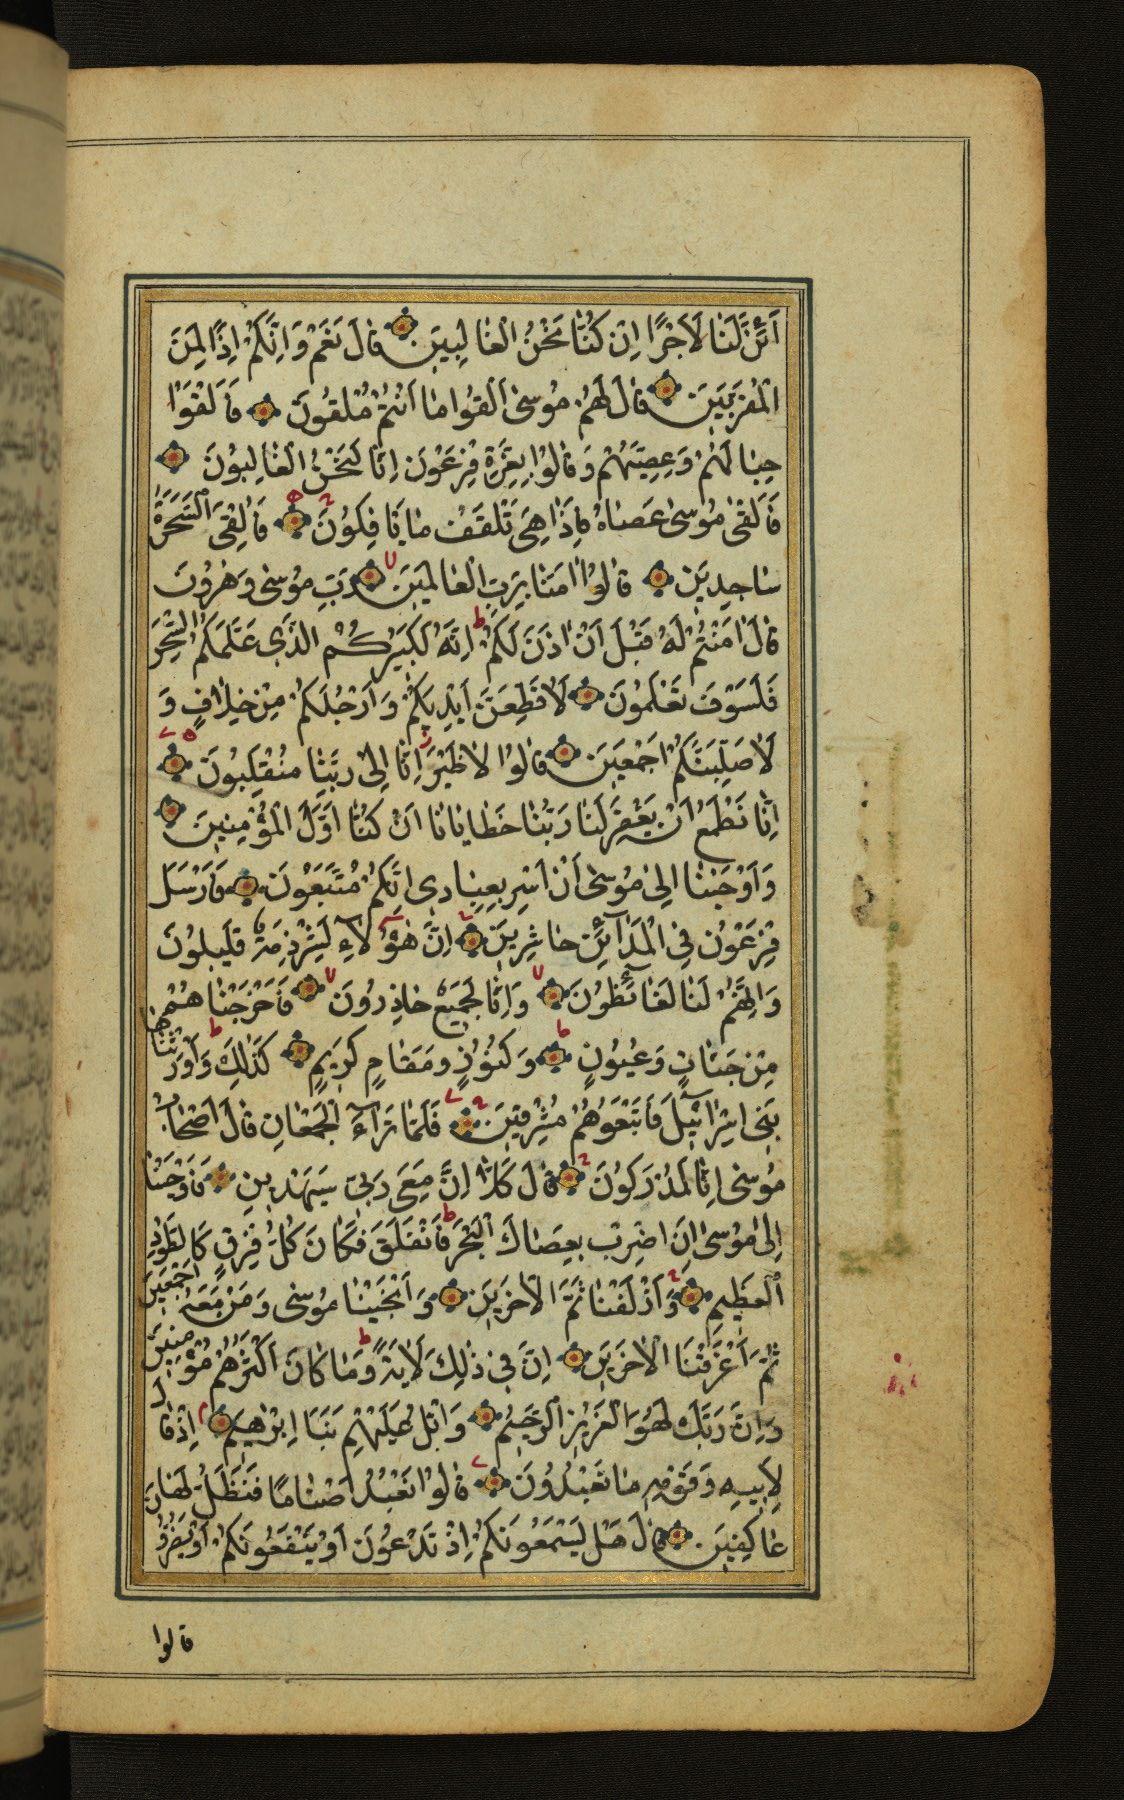 اَئِنَّ لَنَا لَاَجْرًا اِنْ كُنَّا نَحْنُ الْغَالِبِينَ قَالَ نَعَمْ وَاِنَّكُمْ اِذًا لَمِنَ
الْمُقَرَّبِينَ قَالَ لَهُمْ مُوسٰى اَلْقُوا مَا اَنْتُمْ مُلْقُونَ فَاَلْقَوْا
حِبَالَهُمْ وَعِصِيَّهُمْ وَقَالُوا بِعِزَّةِ فِرْعَوْنَ اِنَّا لَنَحْنُ الْغَالِبُونَ
فَاَلْقٰى مُوسٰى عَصَاهُ فَاِذَا هِيَ تَلْقَفُ مَا يَاْفِكُونَ فَاُلْقِيَ السَّحَرَةُ
سَاجِدِينَ قَالُوا اٰمَنَّا بِرَبِّ الْعَالَمِينَ رَبِّ مُوسٰى وَهٰرُونَ
قَالَ اٰمَنْتُمْ لَهُ قَبْلَ اَنْ اٰذَنَ لَكُمْ اِنَّهُ لَكَبِيرُكُمُ الَّذِي عَلَّمَكُمُ السِّحْرَ
فَلَسَوْفَ تَعْلَمُونَ لَاُقَطِّعَنَّ اَيْدِيَكُمْ وَاَرْجُلَكُمْ مِنْ خِلَافٍ وَ
لَاُصَلِّبَنَّكُمْ اَجْمَعِينَ قَالُوا لَا ضَيْرَ اِنَّا اِلٰى رَبِّنَا مُنْقَلِبُونَ
اِنَّا نَطْمَعُ اَنْ يَغْفِرَ لَنَا رَبُّنَا خَطَايَانَا اَنْ كُنَّا اَوَّلَ الْمُؤْمِنِينَ
وَاَوْحَيْنَا اِلٰى مُوسٰى اَنْ اَسْرِ بِعِبَادِي اِنَّكُمْ مُتَّبَعُونَ فَاَرْسَلَ
فِرْعَوْنُ فِي الْمَدَآئِنِ حَاشِرِينَ اِنَّ هٰؤُلَآءِ لَشِرْذِمَةٌ قَلِيلُونَ
وَاِنَّهُمْ لَنَا لَغَآئِظُونَ وَاِنَّا لَجَمِيعٌ حَاذِرُونَ فَاَخْرَجْنَاهُمْ
مِنْ جَنَّاتٍ وَعُيُونٍ وَكُنُوزٍ وَمَقَامٍ كَرِيمٍ كَذٰلِكَ وَاَوْرَثْنَاهَا
بَنِي اِسْرَآئِيلَ فَاَتْبَعُوهُمْ مُشْرِقِينَ فَلَمَّا تَرَآءَ الْجَمْعَانِ قَالَ اَصْحَابُ
مُوسٰى اِنَّا لَمُدْرَكُونَ قَالَ كَلَّا اِنَّ مَعِيَ رَبِّي سَيَهْدِينِ فَاَوْحَيْنَا
اِلٰى مُوسٰى اَنِ اضْرِبْ بِعَصَاكَ الْبَحْرَ فَانْفَلَقَ فَكَانَ كُلُّ فِرْقٍ كَالطَّوْدِ
الْعَظِيمِ وَاَزْلَفْنَا ثَمَّ الْاٰخَرِينَ وَاَنْجَيْنَا مُوسٰى وَمَنْ مَعَهُ اَجْمَعِينَ
ثُمَّ اَغْرَقْنَا الْاٰخَرِينَ اِنَّ فِي ذٰلِكَ لَاٰيَةً وَمَا كَانَ اَكْثَرُهُمْ مُؤْمِنِينَ
وَاِنَّ رَبَّكَ لَهُوَ الْعَزِيزُ الرَّحِيمُ وَاتْلُ عَلَيْهِمْ نَبَاَ اِبْرٰهِيمَ اِذْ قَالَ
لِاَبِيهِ وَقَوْمِهِ مَا تَعْبُدُونَ قَالُوا نَعْبُدُ اَصْنَامًا فَنَظَلُّ لَهَا
عَاكِفِينَ قَالَ هَلْ يَسْمَعُونَكُمْ اِذْ تَدْعُونَ اَوْ يَنْفَعُونَكُمْ اَوْ يَضُرُّونَ
قالوا